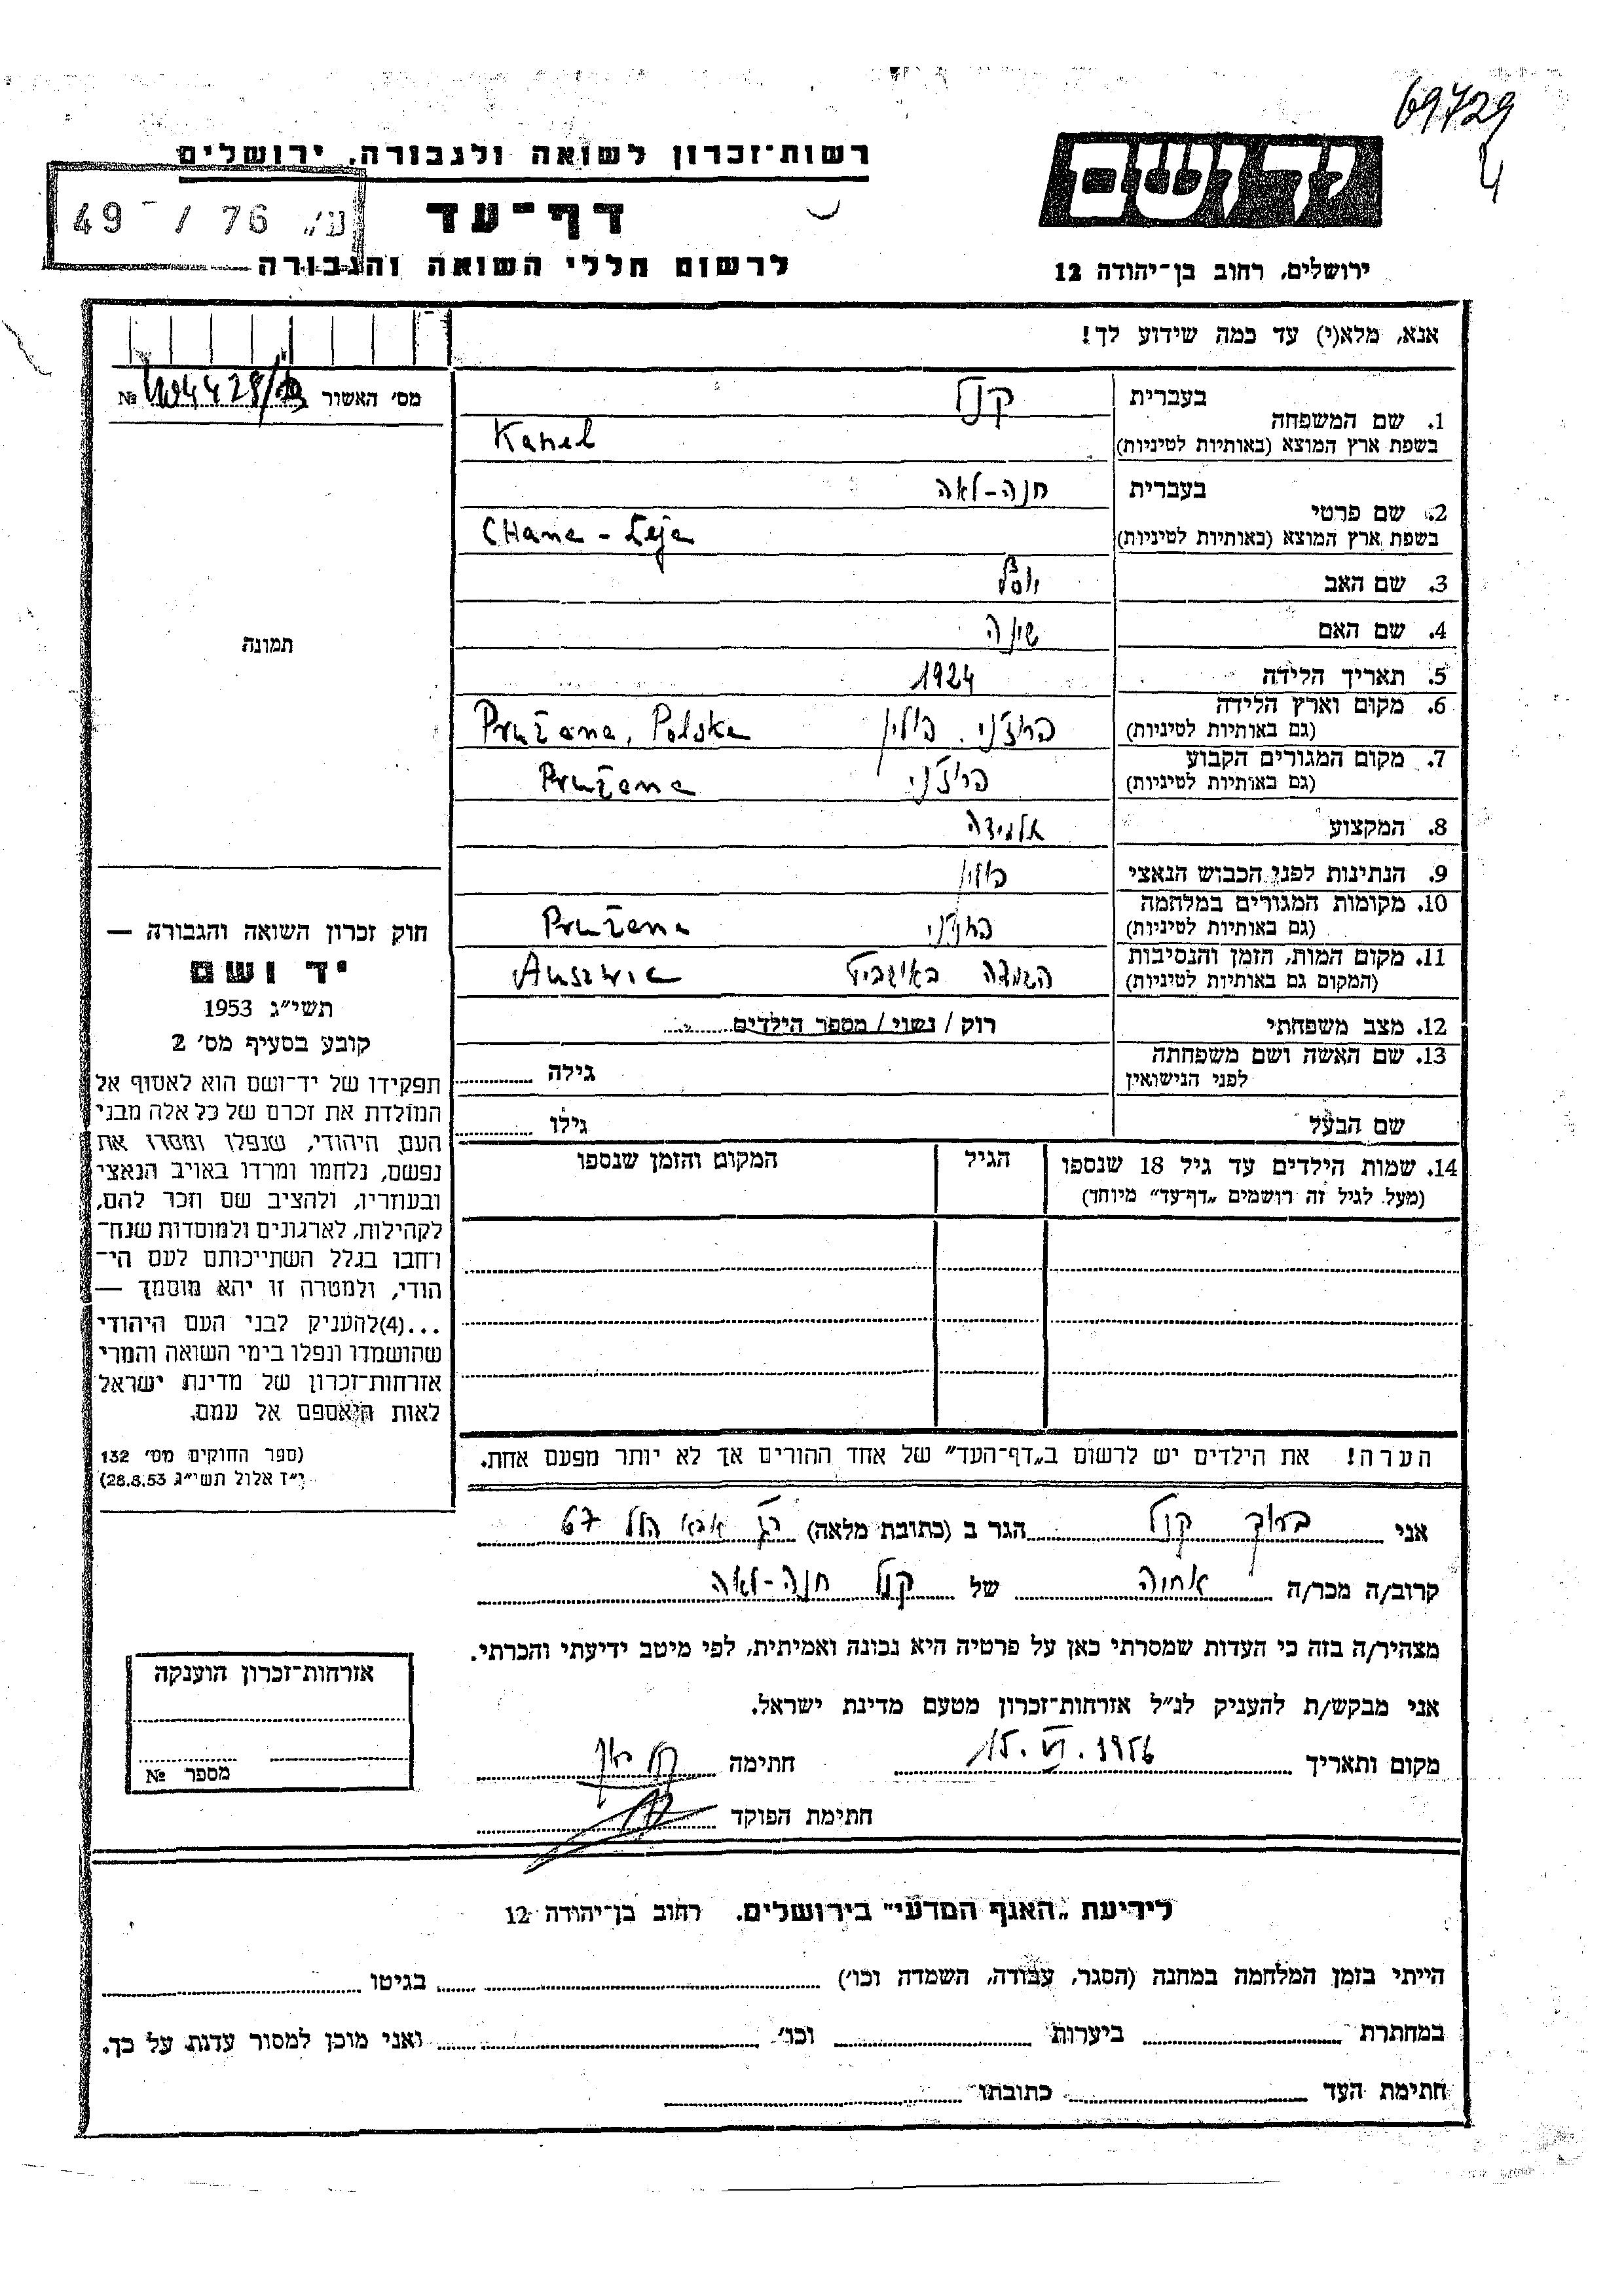 69729
4
רשות־זכרון לשואה ולגבורה, ירושלים
יד ושם
49 - / 76 ע״
דף־עד
לרשום חללי השואה והגבורה
ירושלים, רחוב בן־יהודה 12
אנא, מלא(י) עד כמה שידוע לך!
מס׳ האשור №
1. שם המשפחה
בעברית קנל
בשפת ארץ המוצא (באותיות לטיניות) Kanel
2. שם פרטי
בעברית חנה-לאה
בשפת ארץ המוצא (באותיות לטיניות) CHana - Leja
3. שם האב יוסף
4. שם האם שינה
5. תאריך הלידה 1924
6. מקום וארץ הלידה
(גם באותיות לטיניות) פרוז'ני. פולין Prużana, Polska
7. מקום המגורים הקבוע
(גם באותיות לטיניות) פרוז'ני Prużana
8. המקצוע תלמידה
9. הנתינות לפני הכבוש הנאצי פולין
10. מקומות המגורים במלחמה
(גם באותיות לטיניות) פרוז'ני Prużana
11. מקום המות, הזמן והנסיבות
(המקום גם באותיות לטיניות) הושמדה באושביץ Auszwic
12. מצב משפחתי רוק / נשוי / מספר הילדים
13. שם האשה ושם משפחתה
לפני הנישואין
גילה
שם הבעל
גילו
14. שמות הילדים עד גיל 18 שנספו
(מעל לגיל זה רושמים „דף־עד״ מיוחד)
הגיל
המקום והזמן שנספו
תמונה
חוק זכרון השואה והגבורה —
יד ושם
תשי״ג 1953
קובע בסעיף מס׳ 2
תפקידו של יד־ושם הוא לאסוף אל
המולדת את זכרם של כל אלה מבני
העם היהודי, שנפלו ומסרו את
נפשם, נלחמו ומרדו באויב הנאצי
ובעוזריו, ולהציב שם וזכר להם,
לקהילות, לארגונים ולמוסדות שנח־
רחבו בגלל השתייכותם לעם הי־
הודי, ולמטרה זו יהא מוסמך —
...(4)להעניק לבני העם היהודי
שהושמדו ונפלו בימי השואה והמרי
אזרחות־זכרון של מדינת ישראל
לאות היאספם אל עמם.
(ספר החוקים מס׳ 132
י״ז אלול תשי״ג 28.8.53)
הערה! את הילדים יש לרשום ב„דף־העד״ של אחד ההורים אך לא יותר מפעם אחת.
אני ברוך קנל הגר ב (כתובת מלאה) רג אבא הלל 67
קרוב/ה מכר/ה אחיה של קנל חנה-לאה
מצהיר/ה בזה כי העדות שמסרתי כאן על פרטיה היא נכונה ואמיתית, לפי מיטב ידיעתי והכרתי.
אני מבקש/ת להעניק לנ״ל אזרחות־זכרון מטעם מדינת ישראל.
מקום ותאריך 15. VI. 1956 חתימה
חתימת הפוקד
אזרחות־זכרון הוענקה
מספר №
לידיעת „האגף המדעי״ בירושלים. רחוב בן־יהודה 12
הייתי בזמן המלחמה במחנה (הסגר, עבודה, השמדה וכו׳) בגיטו
במחתרת ביערות וכו׳ ואני מוכן למסור עדות על כך.
חתימת העד כתובתו